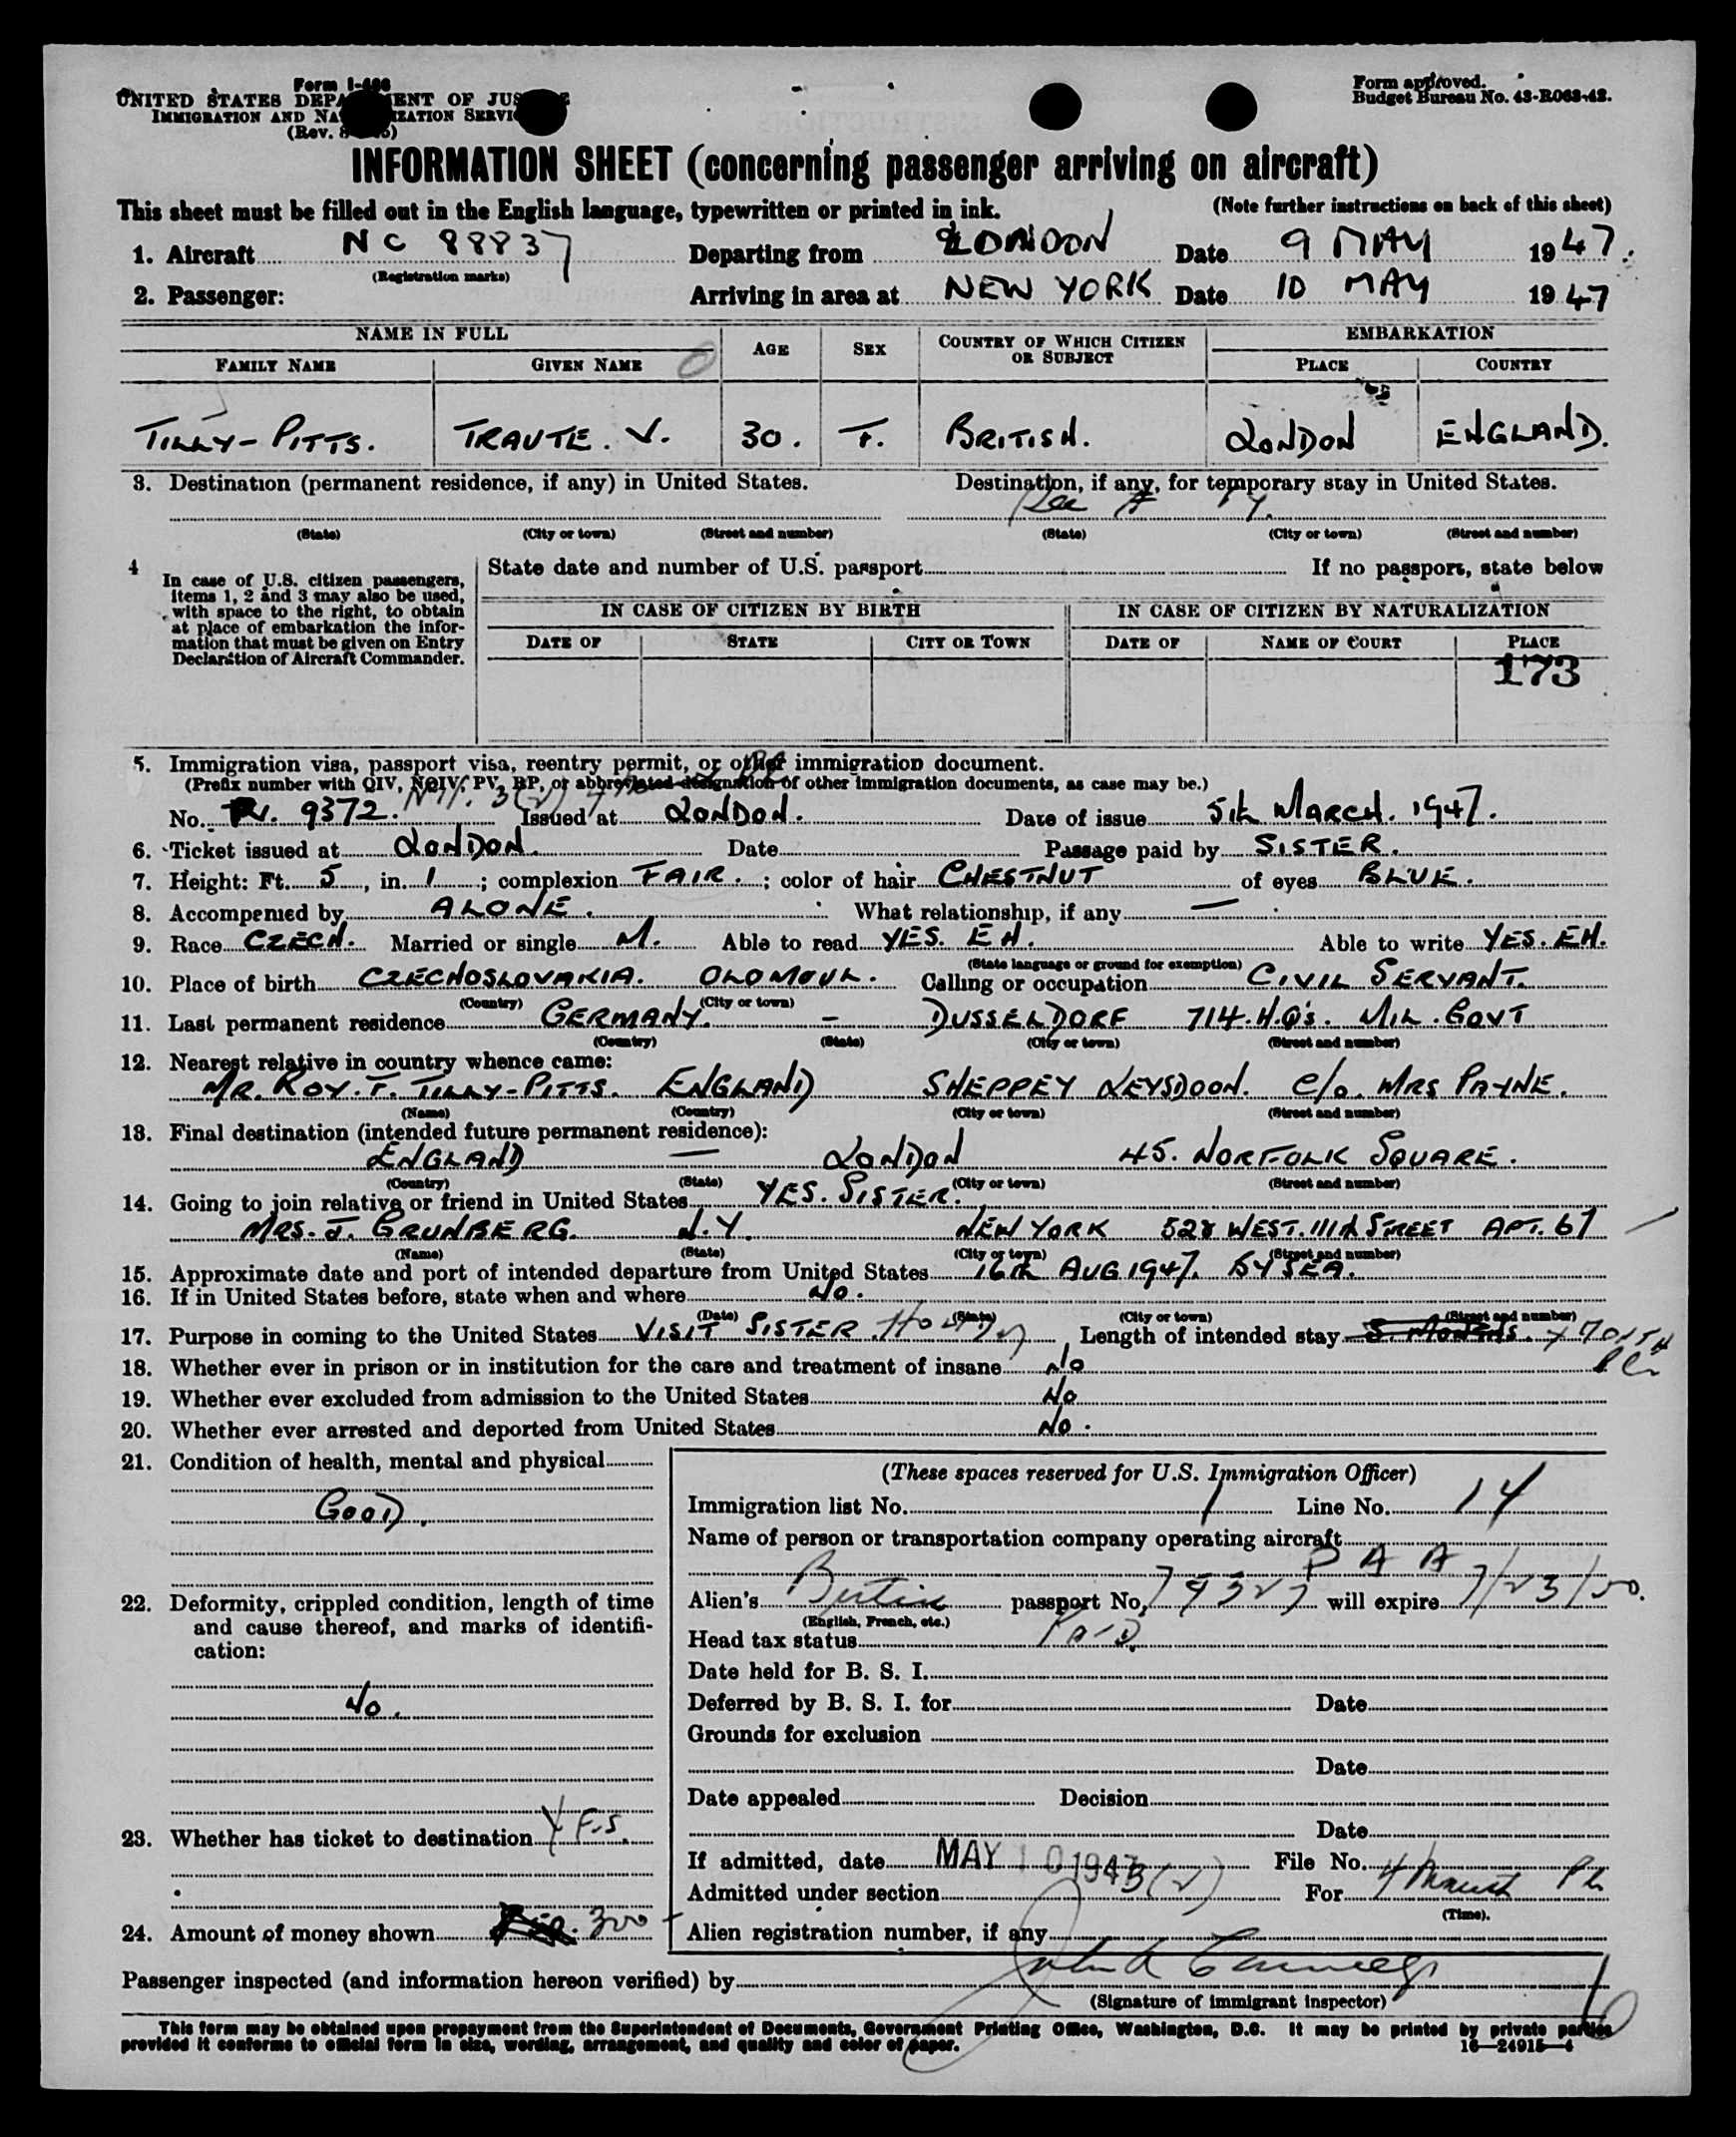 Form I-466
UNITED STATES DEPARTMENT OF JUSTICE
IMMIGRATION AND NATURALIZATION SERVICE
(Rev. 8
Form approved.
Budget Bureau No. 43-R063-42.
INFORMATION SHEET (concerning passenger arriving on aircraft)
This sheet must be filled out in the English language, typewritten or printed in ink. (Note further instructions on back of this sheet)
1. Aircraft NC 88837 Departing from LONDON Date 9 MAY 1947.
(Registration marks)
2. Passenger: Arriving in area at NEW YORK Date 10 MAY 1947
NAME IN FULL AGE SEX COUNTRY OF WHICH CITIZEN OR SUBJECT EMBARKATION
FAMILY NAME GIVEN NAME PLACE COUNTRY
TILLY-PITTS. TRAUTE. V. 30. F. BRITISH. LONDON ENGLAND.
3. Destination (permanent residence, if any) in United States. Destination, if any, for temporary stay in United States.
See # 14.
(State) (City or town) (Street and number) (State) (City or town) (Street and number)
4 In case of U.S. citizen passengers,
items 1, 2 and 3 may also be used,
with space to the right, to obtain
at place of embarkation the infor-
mation that must be given on Entry
Declaration of Aircraft Commander.
State date and number of U.S. passport If no passport, state below
IN CASE OF CITIZEN BY BIRTH IN CASE OF CITIZEN BY NATURALIZATION
DATE OF STATE CITY OR TOWN DATE OF NAME OF COURT PLACE
173
5. Immigration visa, passport visa, reentry permit, or other immigration document.
(Prefix number with QIV, NQIV, PV, RP, or abbreviated designation of other immigration documents, as case may be.)
No. PV. 9372. 3(2) Issued at LONDON. Date of issue 5th MARCH. 1947.
6. Ticket issued at LONDON. Date Passage paid by SISTER.
7. Height: Ft. 5, in. 1; complexion FAIR.; color of hair CHESTNUT of eyes BLUE.
8. Accompanied by ALONE. What relationship, if any —
9. Race CZECH. Married or single M. Able to read YES. EH. Able to write YES. EH.
(State language or ground for exemption)
10. Place of birth CZECHOSLOVAKIA. OLOMOUC. Calling or occupation CIVIL SERVANT.
(Country) (City or town)
11. Last permanent residence GERMANY. — DUSSELDORF 714. H.Q's. MIL. GOVT
(Country) (State) (City or town) (Street and number)
12. Nearest relative in country whence came:
MR. ROY. F. TILLY-PITTS. ENGLAND SHEPPEY LEYSDOON. C/o. MRS PAYNE.
(Name) (Country) (City or town) (Street and number)
13. Final destination (intended future permanent residence):
ENGLAND — LONDON 45. NORFOLK SQUARE.
(Country) (State) (City or town) (Street and number)
14. Going to join relative or friend in United States YES. SISTER.
MRS. J. GRUNBERG. N.Y. NEW YORK 528 WEST. 111th STREET APT. 67
(Name) (State) (City or town) (Street and number)
15. Approximate date and port of intended departure from United States 16th AUG 1947. BY SEA.
16. If in United States before, state when and where No.
(Date) (State) (City or town) (Street and number)
17. Purpose in coming to the United States VISIT SISTER. Length of intended stay
18. Whether ever in prison or in institution for the care and treatment of insane No
19. Whether ever excluded from admission to the United States No
20. Whether ever arrested and deported from United States No.
21. Condition of health, mental and physical
GOOD.
22. Deformity, crippled condition, length of time
and cause thereof, and marks of identifi-
cation:
No.
23. Whether has ticket to destination YES.
24. Amount of money shown 300
(These spaces reserved for U.S. Immigration Officer)
Immigration list No. 1 Line No. 14
Name of person or transportation company operating aircraft
P A A
Alien's passport No. will expire 7/23/50.
(English, French, etc.)
Head tax status
Date held for B. S. I.
Deferred by B. S. I. for Date
Grounds for exclusion
Date
Date appealed Decision
Date
If admitted, date MAY 10 1947 File No.
Admitted under section 3(2) For
(Time).
Alien registration number, if any
Passenger inspected (and information hereon verified) by
(Signature of immigrant inspector)
This form may be obtained upon prepayment from the Superintendent of Documents, Government Printing Office, Washington, D.C. It may be printed by private parties
provided it conforms to official form in size, wording, arrangement, and quality and color of paper. 16—24915—4